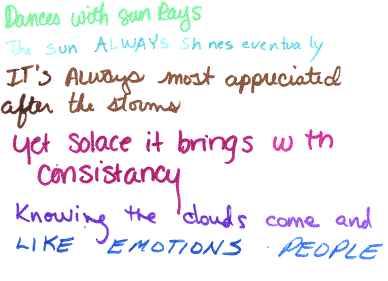 Dances with sun Rays
The sun ALWAYS shines eventually
IT's Always most appreciated
after the storms
yet solace it brings w th
consistancy
Knowing the clouds come and
LIKE EMOTIONS PEOPLE